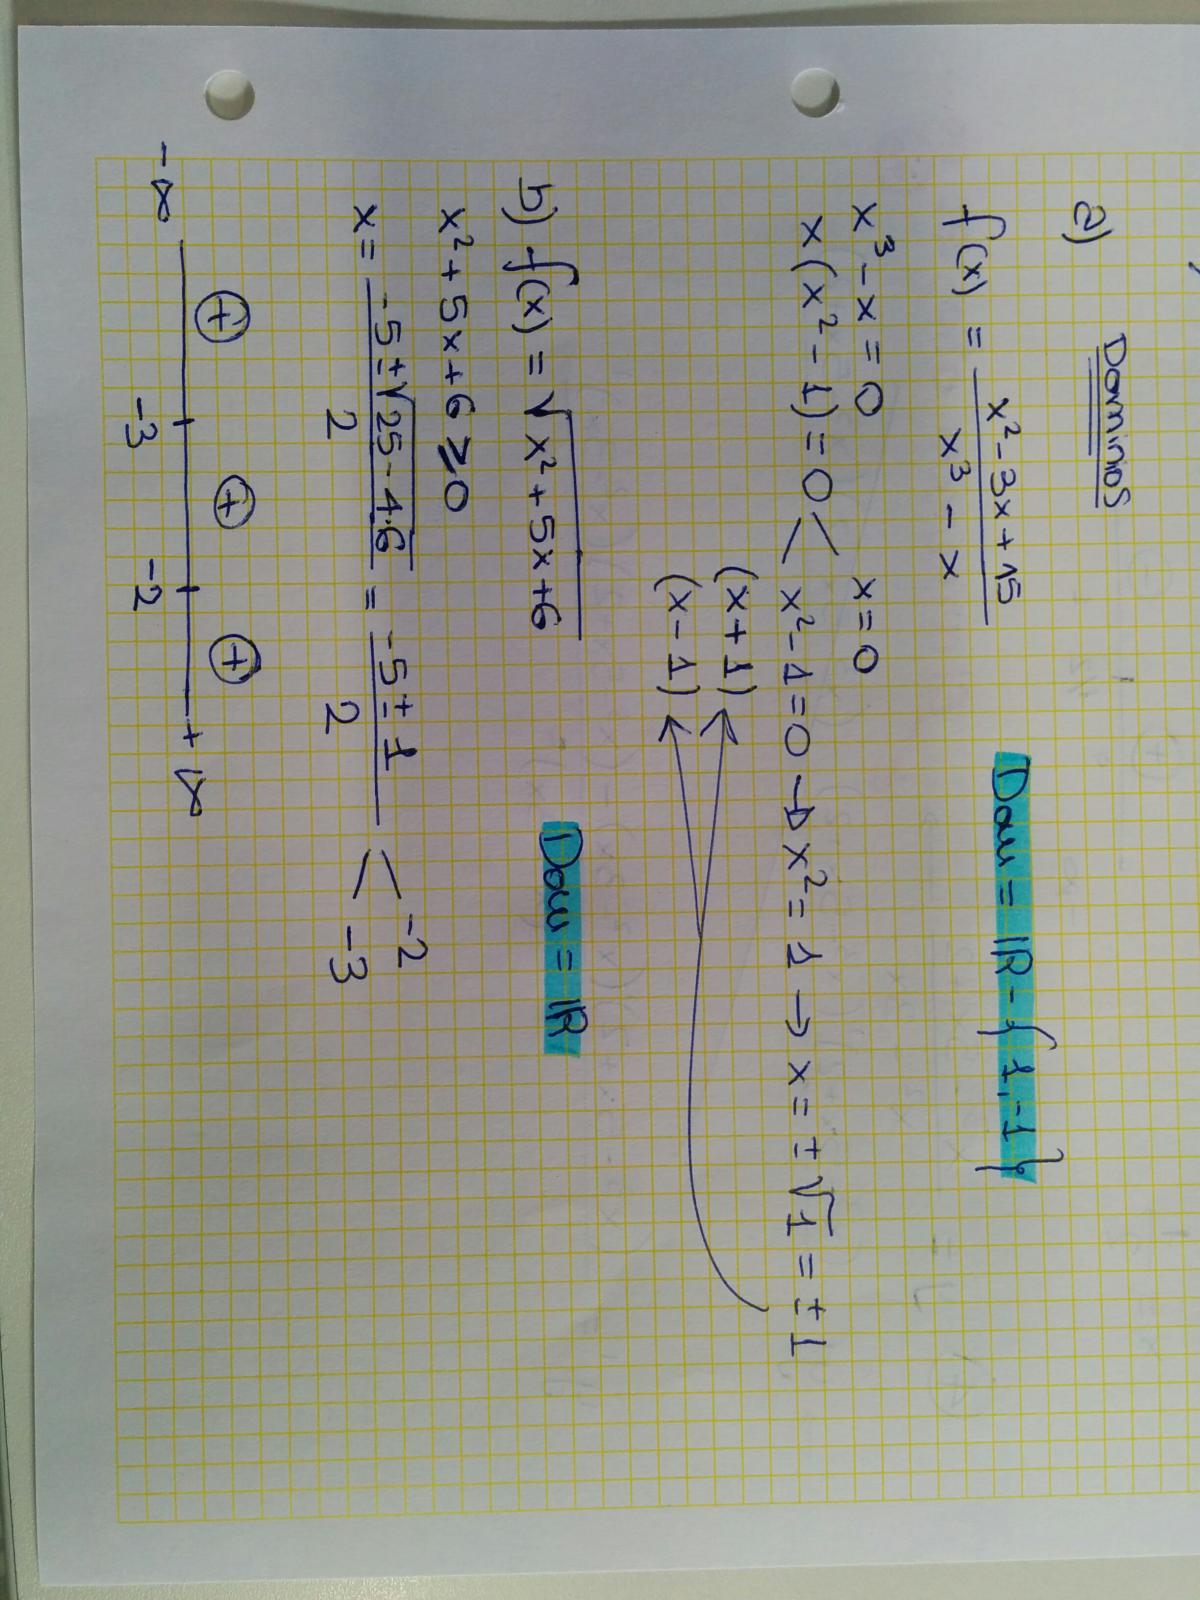 Dominios
a)
f(x) = (x² - 3x + 15) / (x³ - x)
Dom = ℝ - {1, -1}
x³ - x = 0
x(x² - 1) = 0 < x = 0
x² - 1 = 0 → x² = 1 → x = ±√1 = ±1
(x + 1)
(x - 1)
b) f(x) = √(x² + 5x + 6)
Dom = ℝ
x² + 5x + 6 ≥ 0
x = (-5 ± √(25 - 4·6)) / 2 = (-5 ± 1) / 2 < -2
-3
+ + +
-∞ -3 -2 +∞